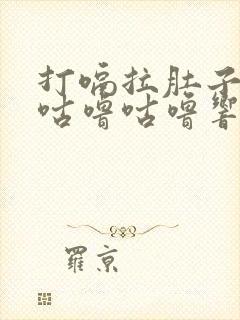 打嗝拉肚子
咕噜咕噜響
羅京